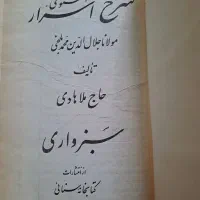 مثنوی
شرح اسرار
مولانا جلال الدین محمد بلخی
تألیف
حاج ملا هادی
سبزواری
از انتشارات
کتابخانه سنائی